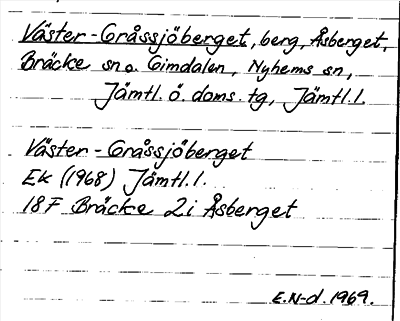 Väster-Gråssjöberget, berg, Åsberget,
Bräcke sn o. Gimdalen, Nyhems sn,
Jämtl. ö. doms. tg, Jämtl. l.
Väster-Gråssjöberget
Ek (1968) Jämtl. l.
18F Bräcke 2i Åsberget
E.N-d. 1969.